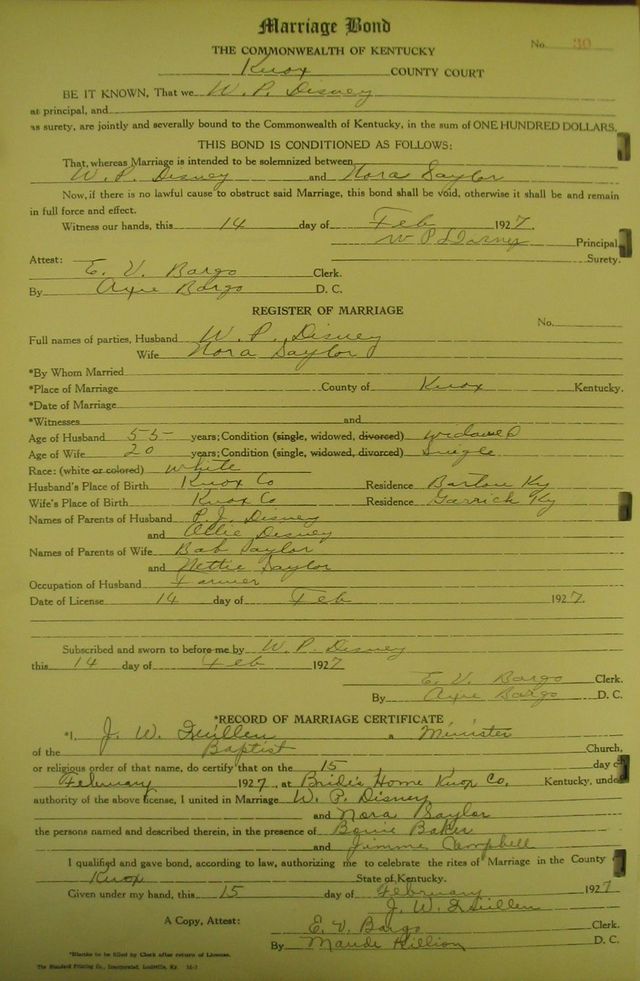 Marriage Bond
No. 30
THE COMMONWEALTH OF KENTUCKY
Knox COUNTY COURT
BE IT KNOWN, That we W. P. Disney
as principal, and
as surety, are jointly and severally bound to the Commonwealth of Kentucky, in the sum of ONE HUNDRED DOLLARS.
THIS BOND IS CONDITIONED AS FOLLOWS:
That, whereas Marriage is intended to be solemnized between
W. P. Disney and Nora Saylor
Now, if there is no lawful cause to obstruct said Marriage, this bond shall be void, otherwise it shall be and remain
in full force and effect.
Witness our hands, this 14 day of Feb 1927.
W P Disney Principal
Surety.
Attest: E. V. Bargo Clerk.
By Bargo D. C.
REGISTER OF MARRIAGE
No.
Full names of parties, Husband W. P. Disney
Wife Nora Saylor
*By Whom Married
*Place of Marriage County of Knox Kentucky.
*Date of Marriage
*Witnesses and
Age of Husband 55 years; Condition (single, widowed, divorced) widowed
Age of Wife 20 years; Condition (single, widowed, divorced) single
Race: (white or colored) white
Husband's Place of Birth Knox Co Residence Barton Ky
Wife's Place of Birth Knox Co Residence Garrick Ky
Names of Parents of Husband P. J. Disney
and Ollie Disney
Names of Parents of Wife Bab Saylor
and Nettie Saylor
Occupation of Husband Farmer
Date of License 14 day of Feb 1927.
Subscribed and sworn to before me by W. P. Disney
this 14 day of Feb 1927
E. V. Bargo Clerk.
By Bargo D. C.
*RECORD OF MARRIAGE CERTIFICATE
*I, J. W. a Minister
of the Baptist Church,
or religious order of that name, do certify that on the 15 day of
February 1927, at Bride's Home Knox Co. Kentucky, under
authority of the above license, I united in Marriage W. P. Disney
and Nora Saylor
the persons named and described therein, in the presence of Baker
and Jimmie Campbell
I qualified and gave bond, according to law, authorizing me to celebrate the rites of Marriage in the County of
Knox State of Kentucky.
Given under my hand, this 15 day of February 1927
J. W.
A Copy, Attest: E. V. Bargo Clerk.
By Maude Killion D. C.
*Blanks to be filled by Clerk after return of License.
The Standard Printing Co., Incorporated, Louisville, Ky